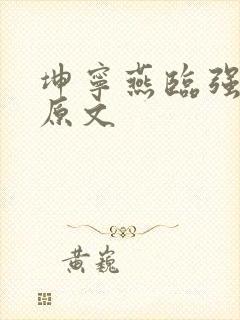 坤寧燕臨强
原文
黃巍